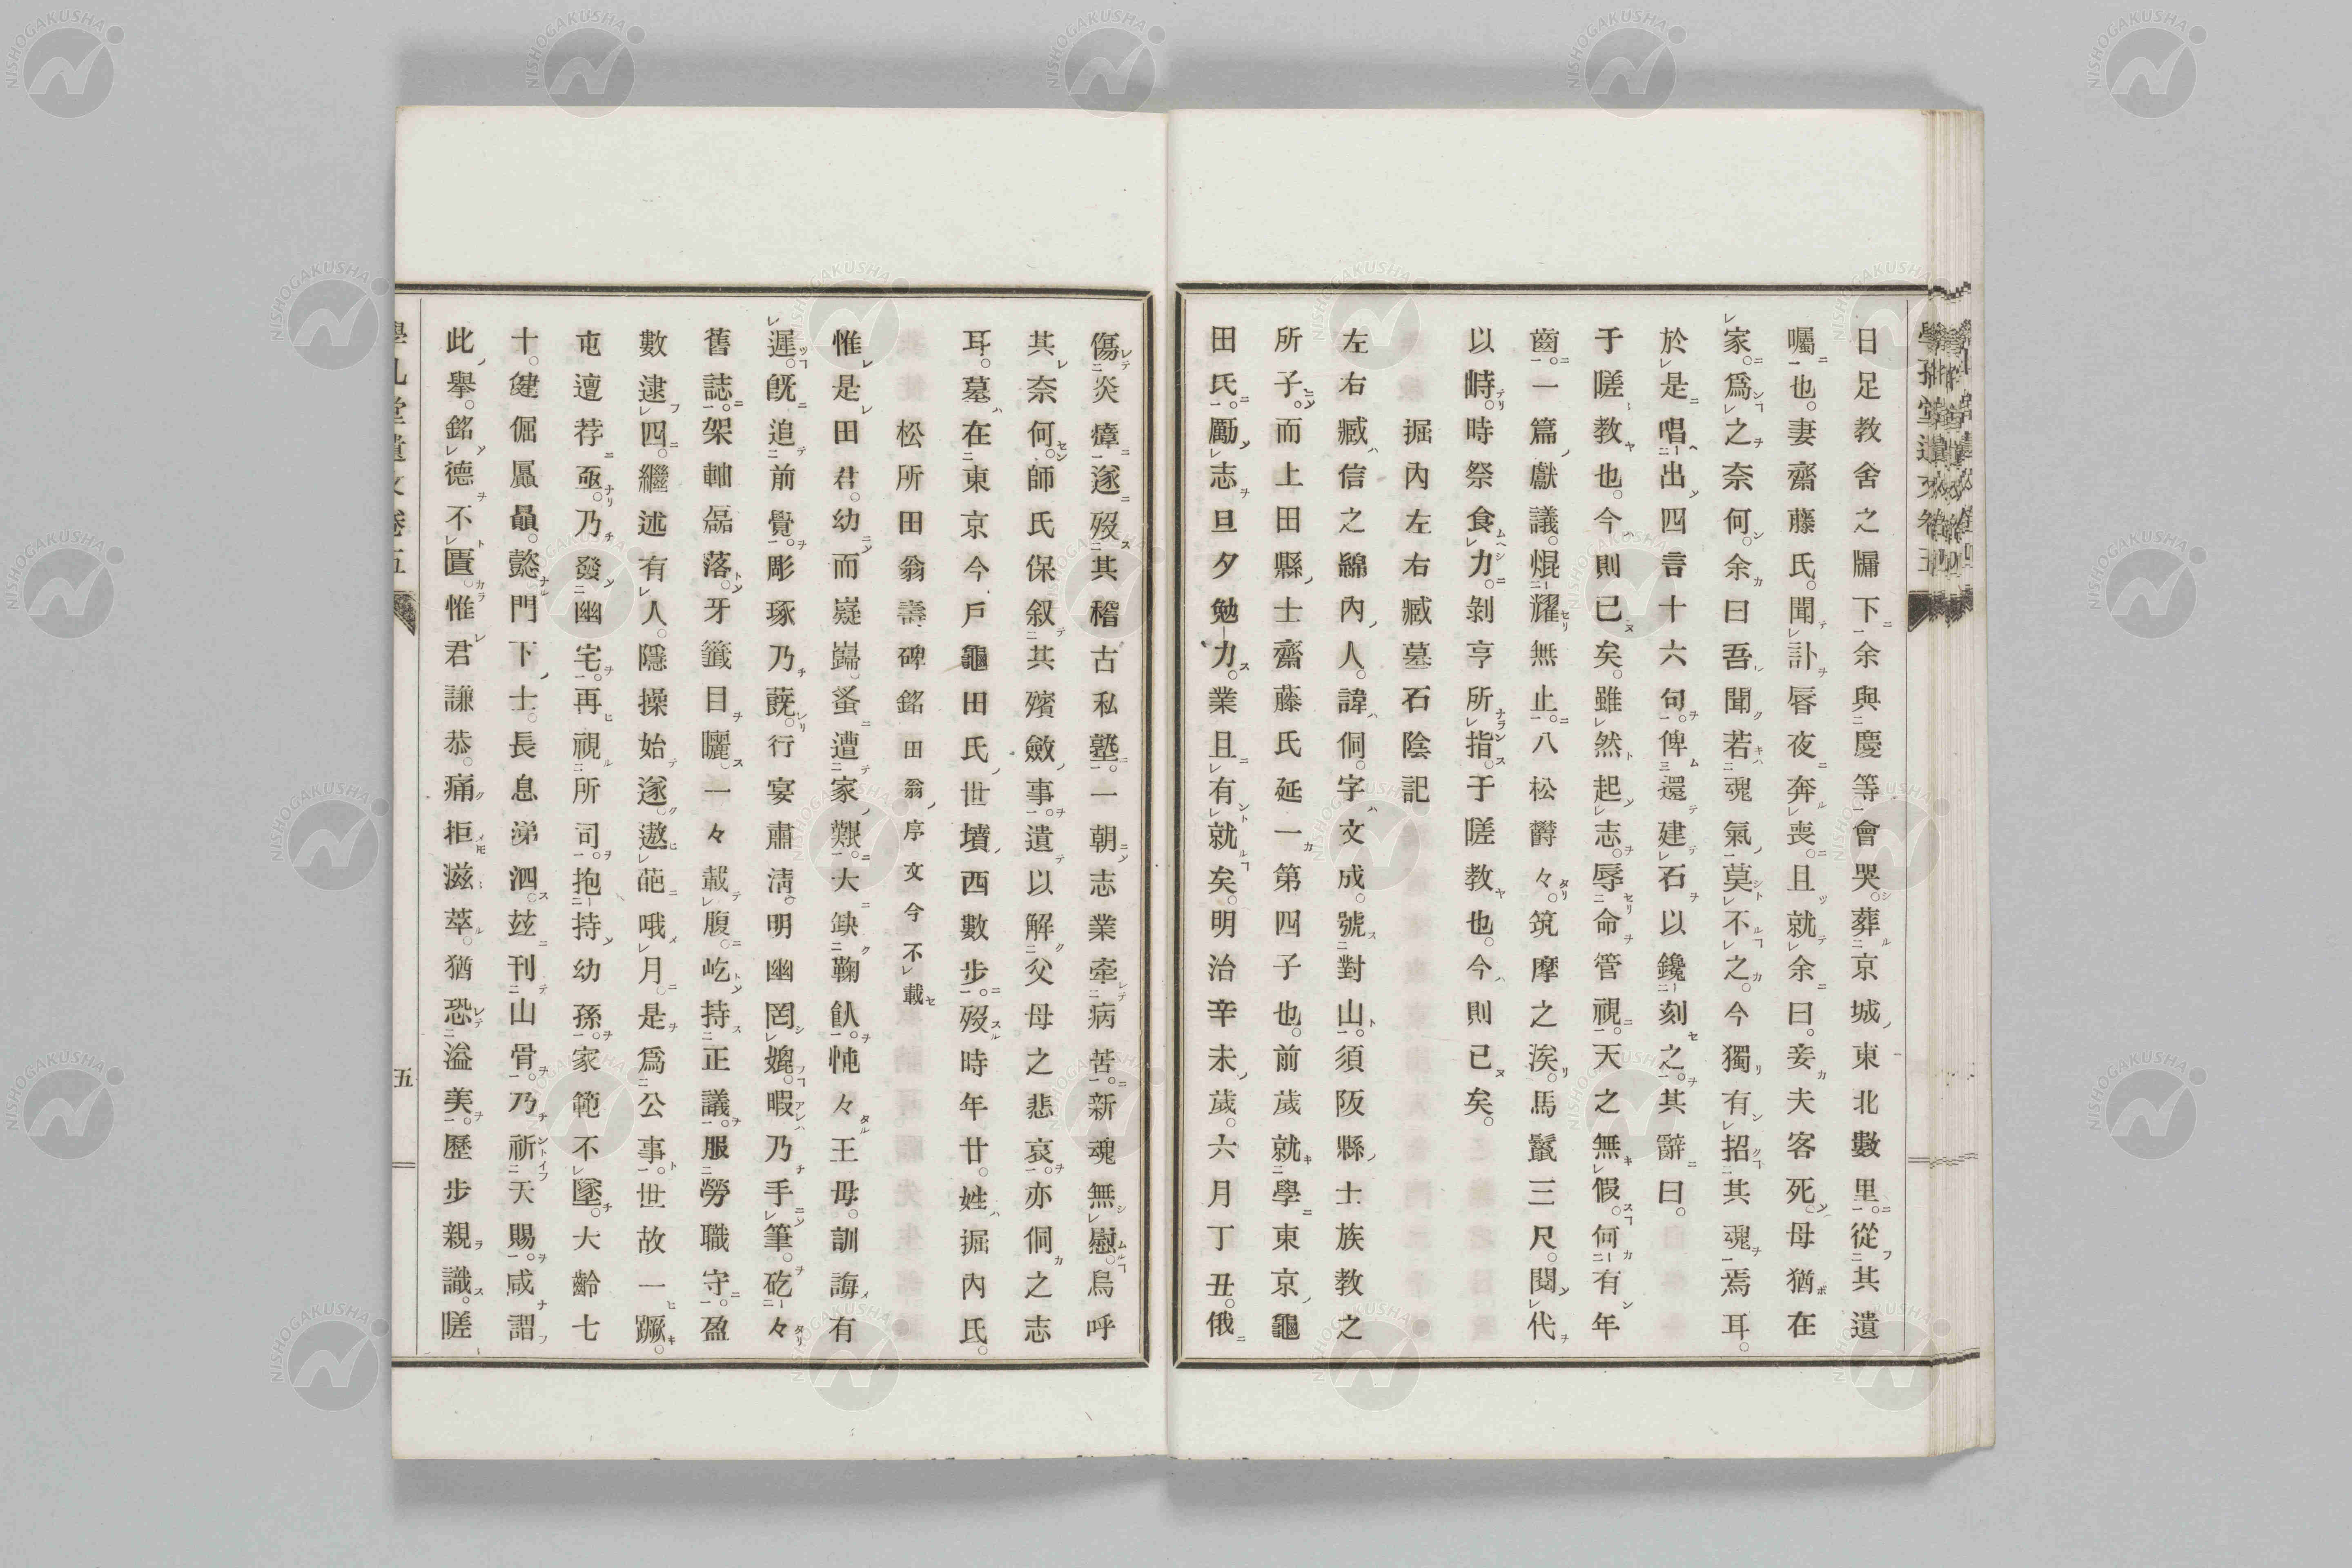 日足教舍之牖下余與慶等會哭。葬京城東北數里。從其遺
囑也。妻齋藤氏。聞訃唇夜奔喪。且就余曰。妾夫客死。母猶在
家。爲之奈何。余曰吾聞若魂氣莫不之。今獨有招其魂焉耳。
於是唱出四言十六句。俾還建石以鑱刻之。其辭曰。
于嗟教也。今則已矣。雖然起志。辱命管視。天之無假。何有年
齒。一篇獻議。焜耀無止。八松欝々。筑摩之涘。馬鬣三尺。閱代
以峙。時祭食力。剝亨所指。于嗟教也。今則已矣。
掘內左右臧墓石陰記
左右臧信之綿內人。諱侗。字文成。號對山。須阪縣士族教之
所子。而上田縣士齋藤氏延一第四子也。前歲就學東京龜
田氏。勵志旦夕勉力。業且有就矣。明治辛未歲。六月丁丑。俄
傷炎瘴遂歿其稽古私塾。一朝志業牽病苦。新魂無慰。烏呼
其奈何。師氏保叙其殯斂事。遺以解父母之悲哀。亦侗之志
耳。墓在東京今戶龜田氏世墳西數步。歿時年廿。姓掘內氏。
松所田翁壽碑銘 田翁序文今不載
惟是田君。幼而嶷巋。蚤遭家艱。大缺鞠飤。忳々王母。訓誨有
遲。旣追前覺。彫琢乃蕘。行宴肅淸。明幽罔媿。暇乃手筆。矻々
舊誌。架軸磊落。牙籤目曬。一々戴腹。屹持正議。服勞職守。盈
數逮四。繼述有人。隱操始遂。遨葩哦月。是爲公事。世故一蹶。
屯邅荐亟。乃發幽宅。再視所司。抱持幼孫。家範不墜。大齡七
十。健倔贔贔。懿門下士。長息涕泗。玆刊山骨。乃祈天賜。咸謂
此擧。銘德不匱。惟君謙恭。痛拒滋萃。猶恐溢美。歷步親識。嗟